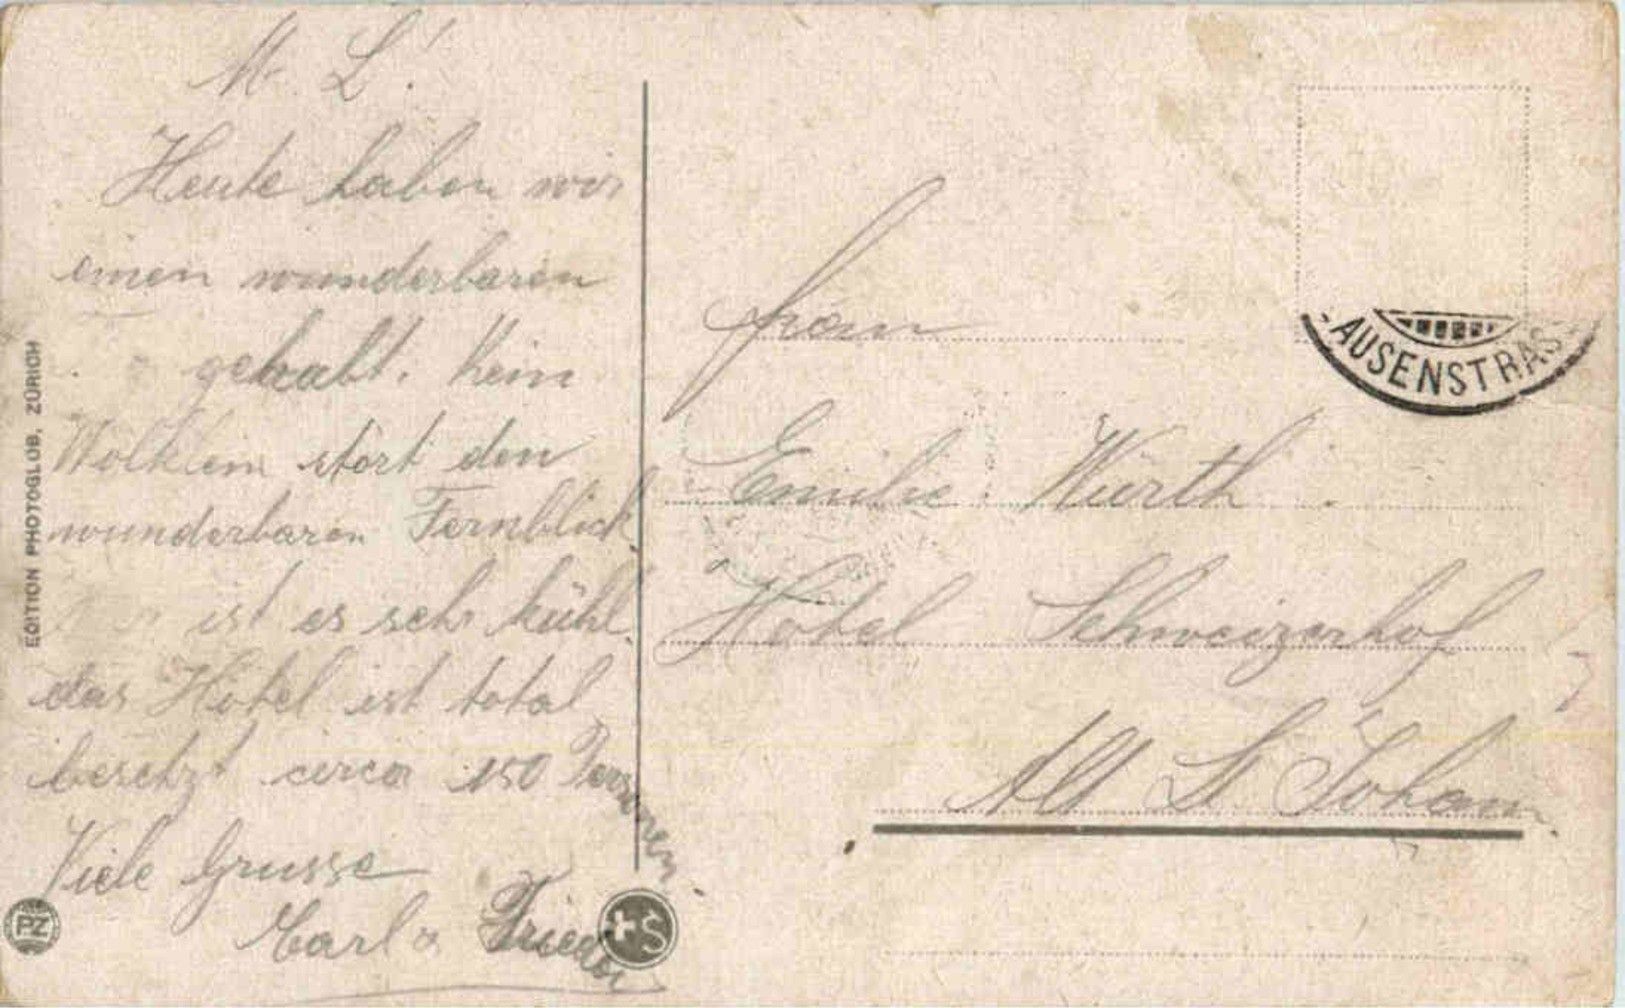 M. L!
Heute haben wir
einen wunderbaren
gehabt. Kein
Wölklein stört den
wunderbaren Fernblick
ist es sehr kühl.
das Hotel ist total
besetzt circa 150 Personen.
Viele Grüsse
Carl &
EDITION PHOTOGLOB, ZÜRICH
PZ
+S
AUSENSTRAS
Frau
Emilie Würth
Hotel Schweizerhof
Alt St. Johann